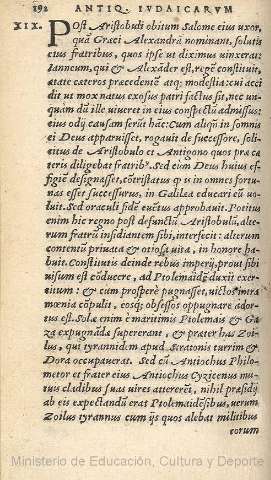 192 ANTIQ. IVDAICARVM
XIX. Post Aristobuli obitum Salome eius uxor,
quã Græci Alexandrã nominant, solutis
eius fratribus, quos ipse ut diximus uinxerat:
Ianneum, qui & Alexãder est, regẽ constituit,
ætate cæteros præcedentẽ atq; modestia: cui acci
dit ut mox natus exosus patri factus sit, nec un-
quàm dũ ille uiueret in eius conspectũ admissus:
eius odij causam ferũt hãc: Cum aliqñ in somnis
ei Deus apparuisset, rogauit de successore, solli-
citus de Aristobulo et Antigono quos præ cæ
teris diligebat fratribꝰ. Sed cùm Deus huius ef-
figiẽ designasset, cõtristatus ꝙ is in omnes fortu-
nas esset successurus, in Galilea educari eũ uo-
luit. Sed oraculi fidẽ euẽtus approbauit. Potitus
enim hic regno post defunctũ Aristobulũ, alte-
rum fratrũ insidiantem sibi, interfecit: alterum
contentũ priuata & otiosa uita, in honore ha-
buit. Constitutis deinde rebus imperij, prout sibi
uisum est cõducere, ad Ptolemaidẽ duxit exer-
citum: & cum prosperè pugnasset, uictos intra
mœnia cõpulit, eosq; obsessos oppugnare ador-
tus est. Solæ enim è maritimis Ptolemais & Ga
za expugnãdæ supererant, & præter has Zoi-
lus, qui tyrannidem apud Stratonis turrim &
Dora occupauerat. Sed cũ Antiochus Philo-
metor et frater eius Antiochus Cyzicenus mu-
tuis cladibus suas uires attererẽt, nihil præsidij
ab eis expectandũ erat Ptolemaidẽsibus, uerum
Zoilus tyrannus cum ijs quos alebat militibus
eorum
Ministerio de Educación, Cultura y Deporte